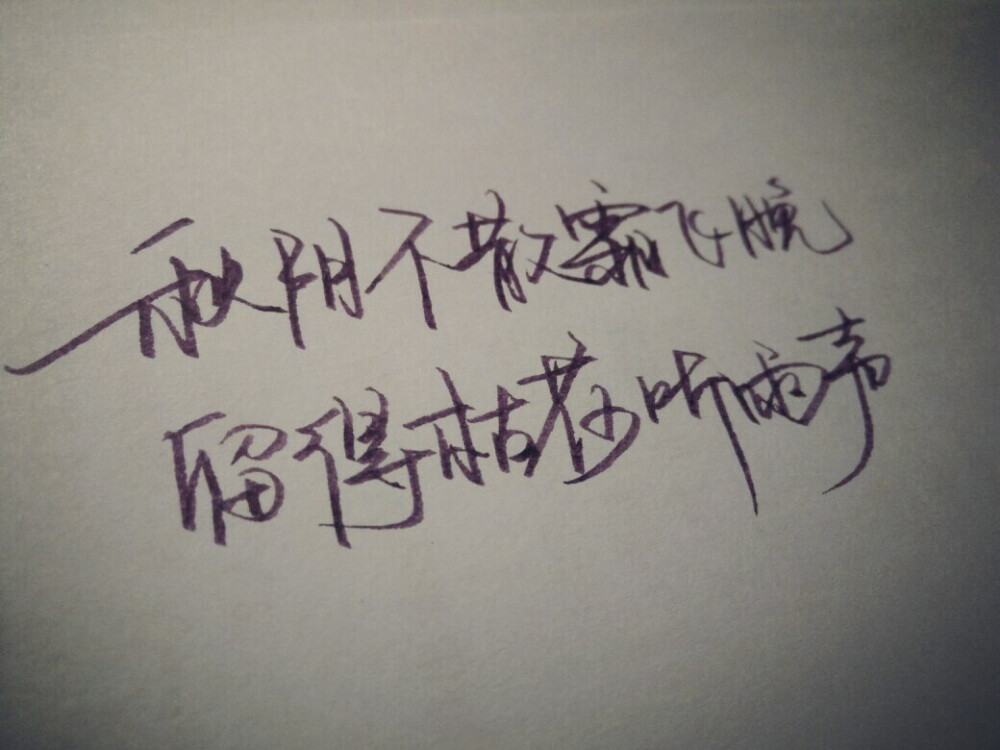 秋阴不散霜飞晚
留得枯荷听雨声